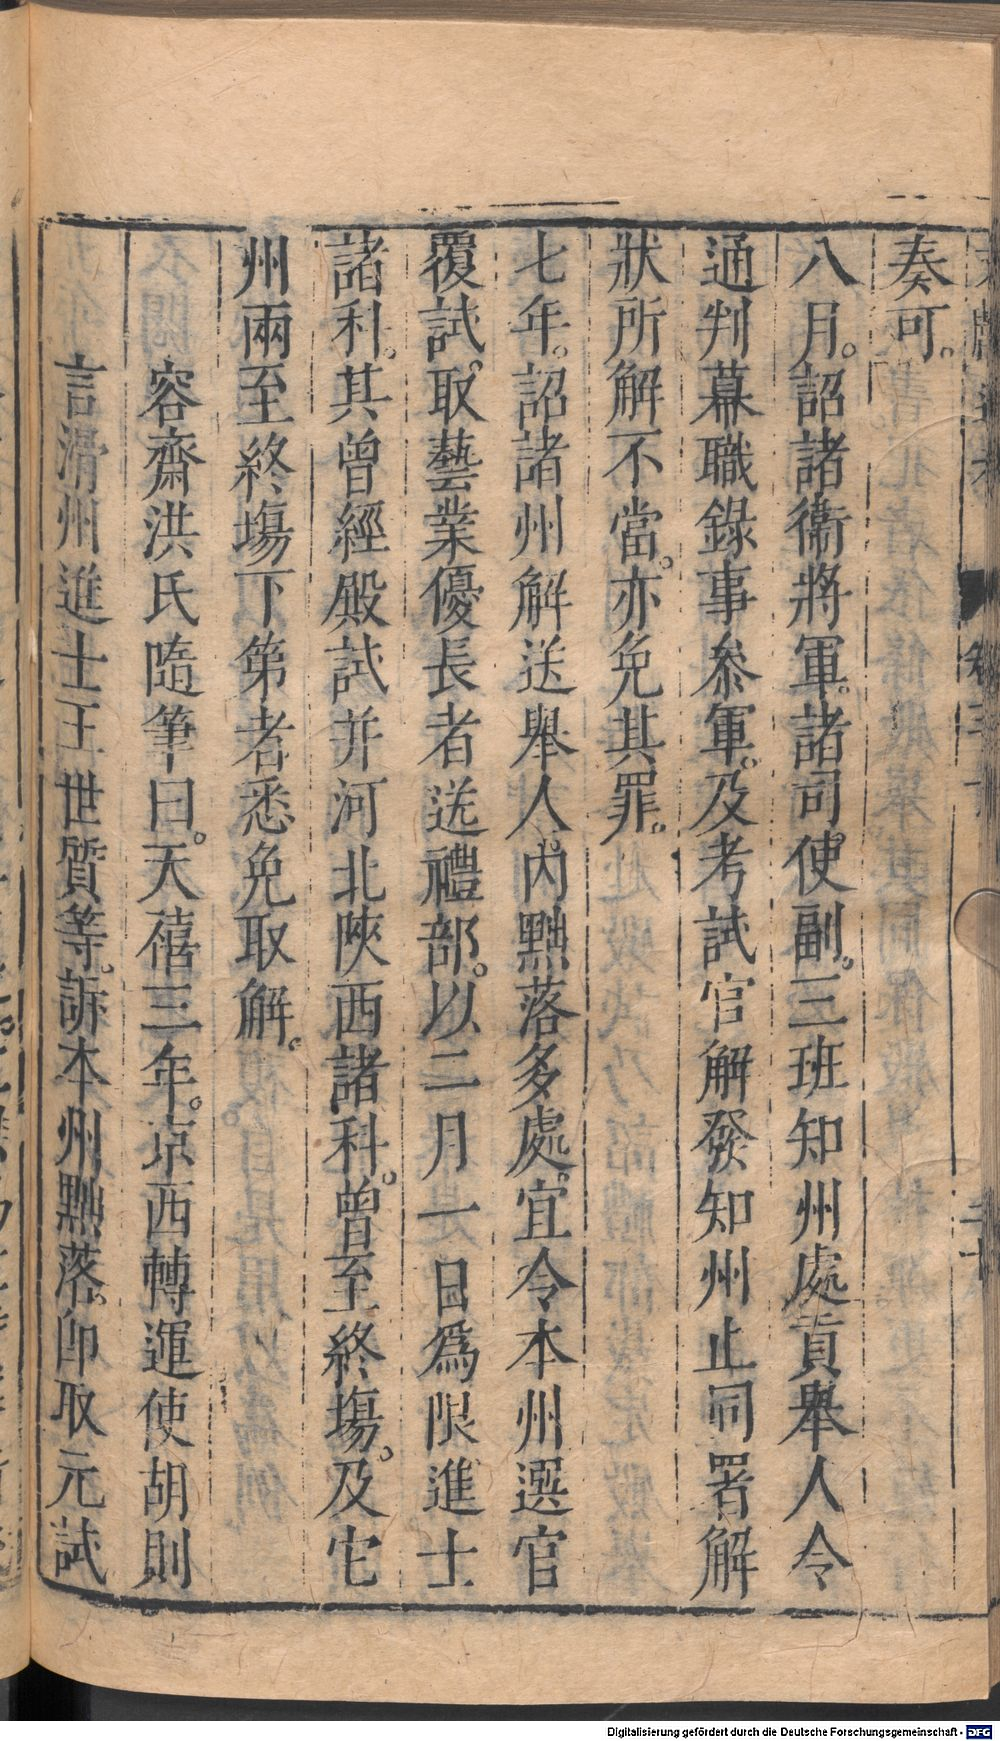 奏可。
八月。詔諸衞將軍。諸司使副。三班知州處貢舉人令
通判幕職錄事叅軍。及考試官解發知州止同署解
狀所解不當。亦免其罪。
七年。詔諸州解送舉人。内黜落多處。宜令本州選官
覆試。取藝業優長者送禮部。以二月一日爲限進士
諸科。其曾經殿試并河北陝西諸科。曾至終塲。及它
州兩至終塲下第者悉免取解。
容齋洪氏隨筆曰。天禧三年。京西轉運使胡則
言滑州進士王世質等。訴本州黜落。卽取元試
Digitalisierung gefördert durch die Deutsche Forschungsgemeinschaft - DFG